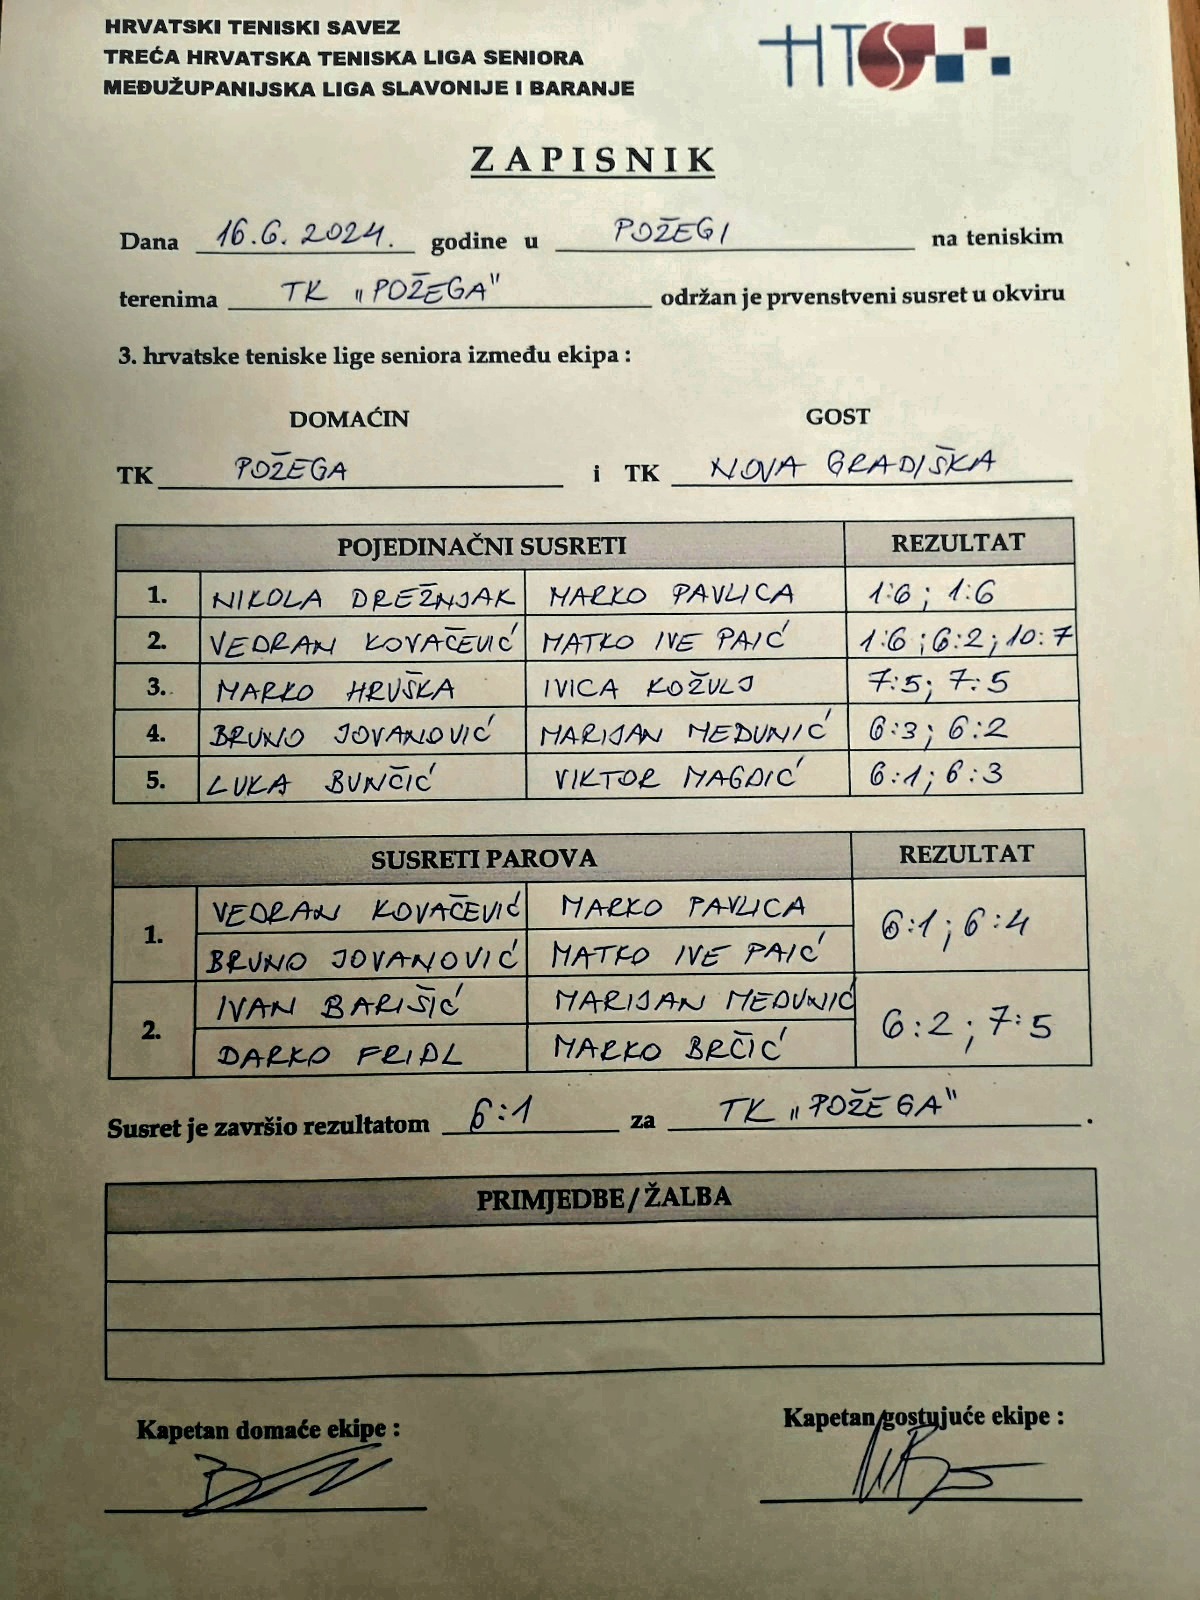 HRVATSKI TENISKI SAVEZ
TREĆA HRVATSKA TENISKA LIGA SENIORA
MEĐUŽUPANIJSKA LIGA SLAVONIJE I BARANJE
HTS
ZAPISNIK
Dana 16.6. 2024. godine u POŽEGI na teniskim
terenima TK „POŽEGA" održan je prvenstveni susret u okviru
3. hrvatske teniske lige seniora između ekipa :
DOMAĆIN GOST
TK POŽEGA i TK NOVA GRADIŠKA
POJEDINAČNI SUSRETI REZULTAT
1. NIKOLA DREŽNJAK MARKO PAVLICA 1:6 ; 1:6
2. VEDRAN KOVAČEVIĆ MATKO IVE PAIĆ 1:6 ; 6:2 ; 10:7
3. MARKO HRUŠKA IVICA KOŽULJ 7:5 ; 7:5
4. BRUNO JOVANOVIĆ MARIJAN MEDUNIĆ 6:3 ; 6:2
5. LUKA BUNČIĆ VIKTOR MAGDIĆ 6:1 ; 6:3
SUSRETI PAROVA REZULTAT
1. VEDRAN KOVAČEVIĆ MARKO PAVLICA 6:1 ; 6:4
BRUNO JOVANOVIĆ MATKO IVE PAIĆ
2. IVAN BARIŠIĆ MARIJAN MEDUNIĆ 6:2 ; 7:5
DARKO FRIDL MARKO BRČIĆ
Susret je završio rezultatom 6:1 za TK „POŽEGA" .
PRIMJEDBE / ŽALBA
Kapetan domaće ekipe : Kapetan gostujuće ekipe :